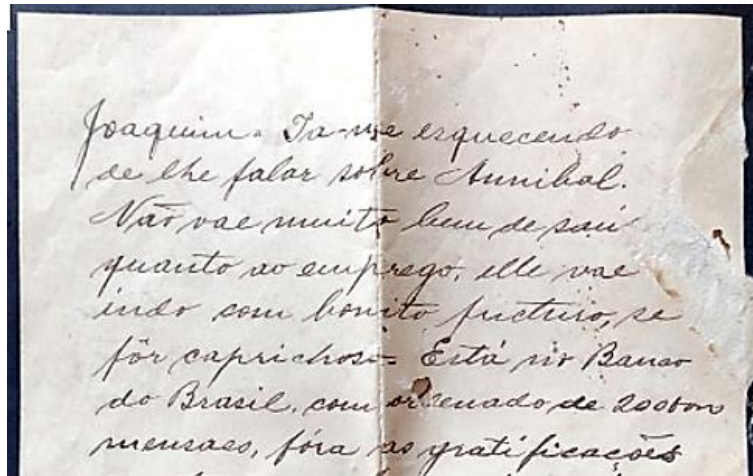 Joaquim. Ia-me esquecendo
de lhe falar sobre Annibal.
Não vae muito bem de saú
quanto ao emprego, elle vae
indo com bonito fucturo, se
fôr caprichoso. Está no Banco
do Brasil, com ordenado de
mensaes, fóra as gratificações